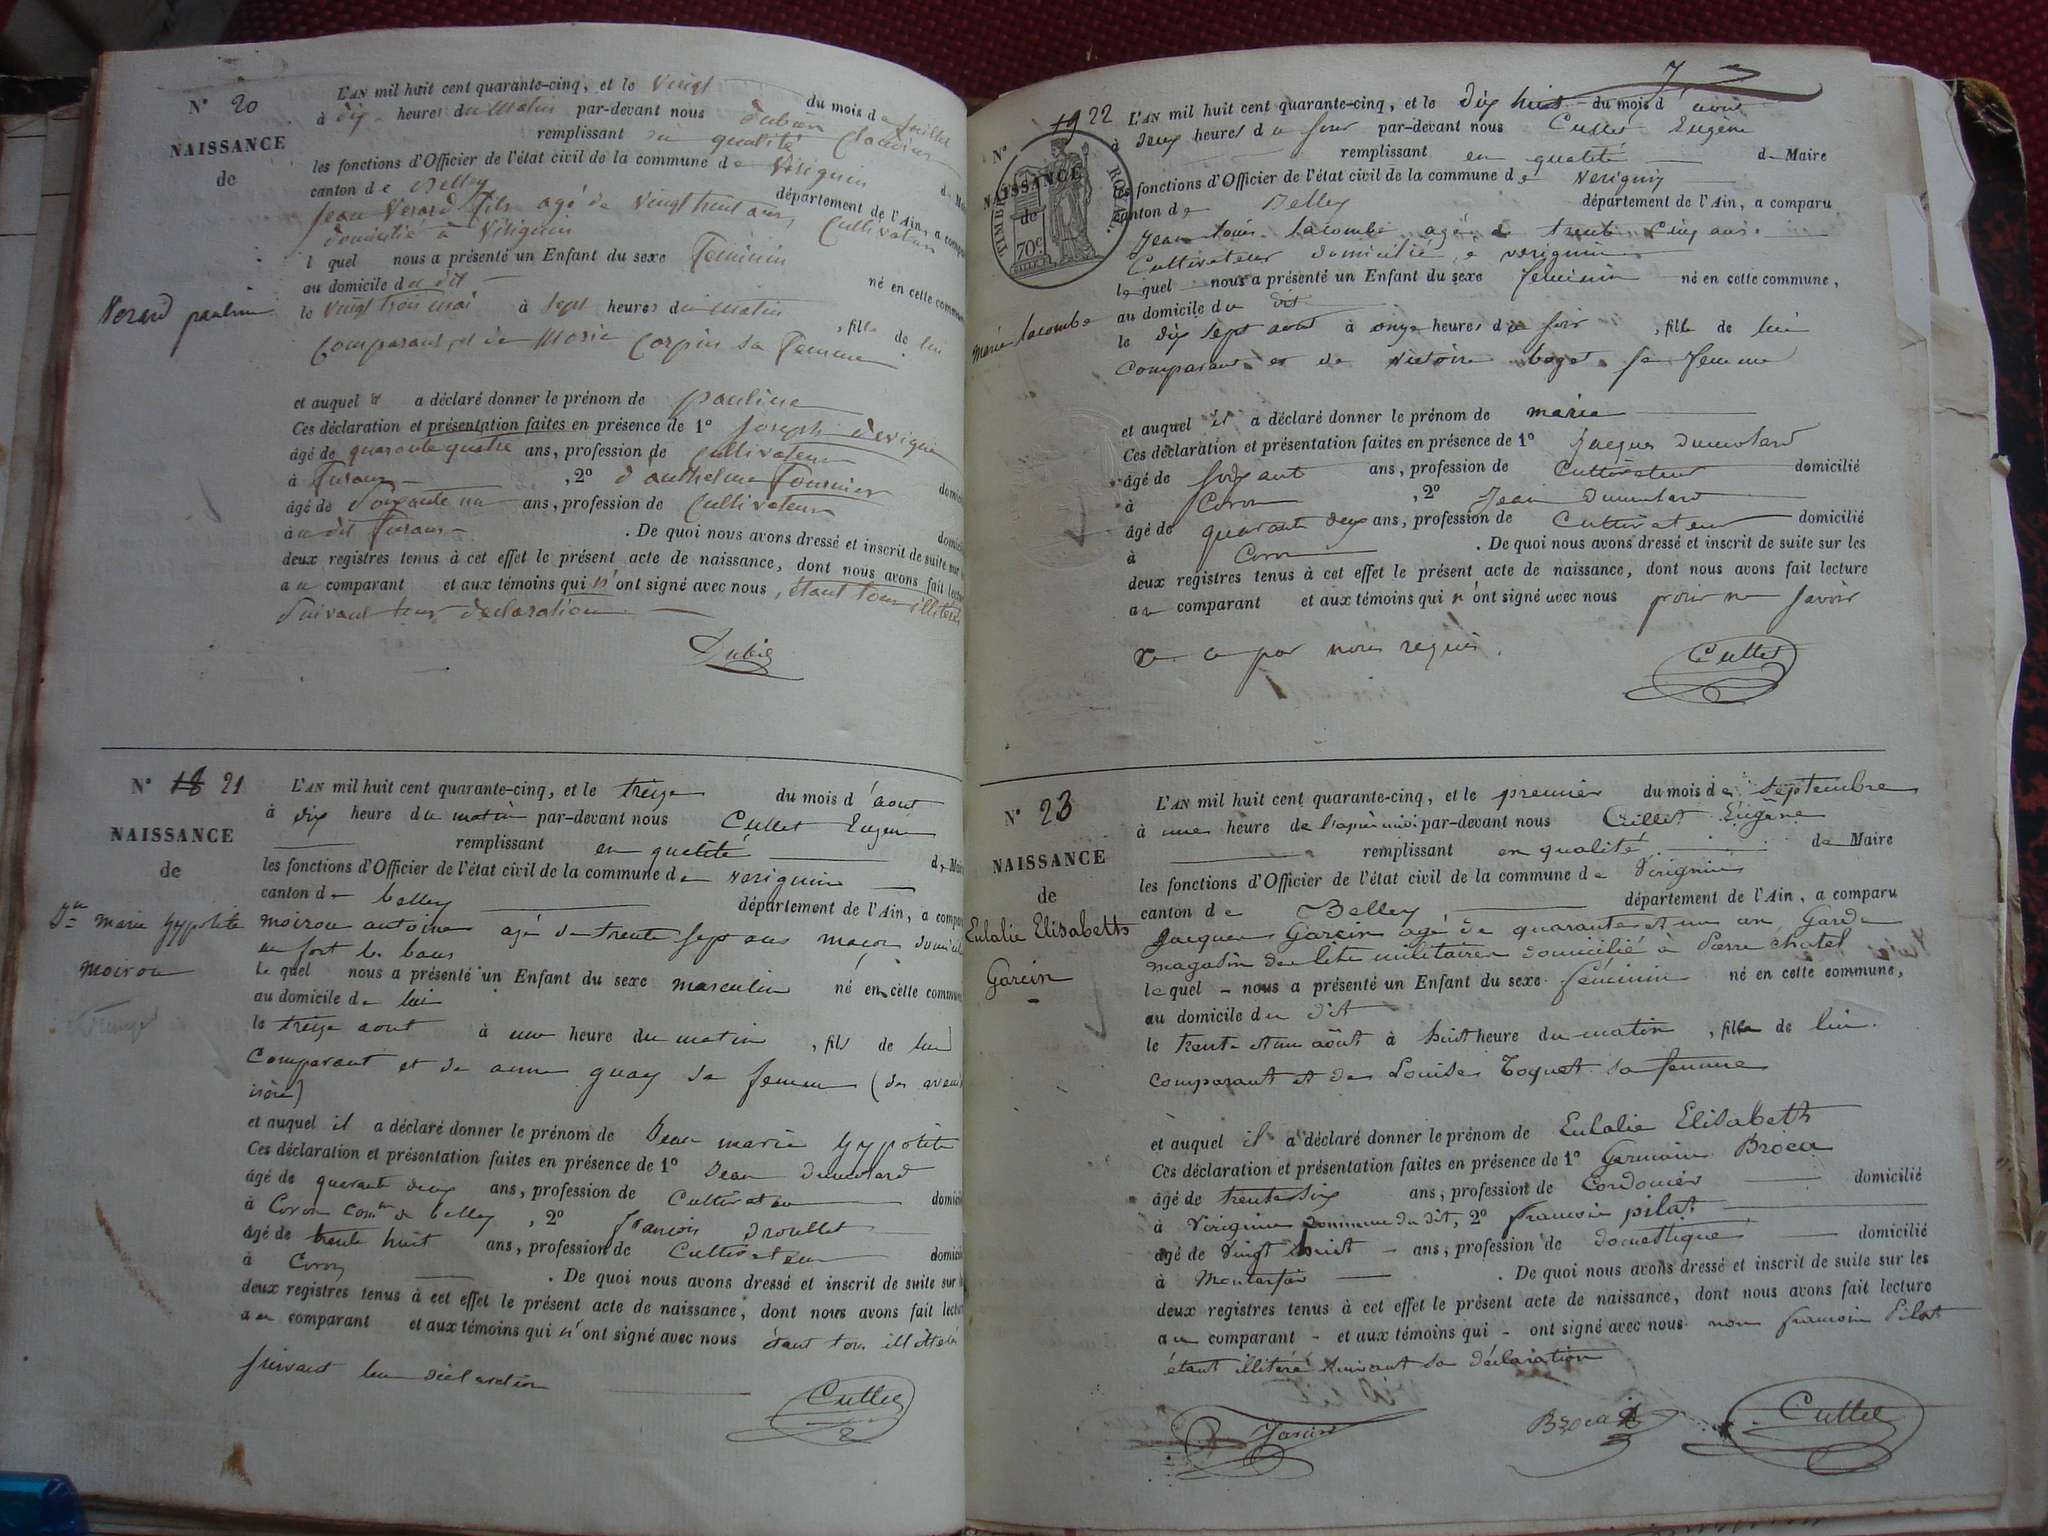 N° 20
NAISSANCE
de
Verard pauline
L'AN mil huit cent quarante-cinq, et le vingt du mois de juillet
à dix heures du matin par-devant nous Dubien Claudius
remplissant en qualité de Maire
les fonctions d'Officier de l'état civil de la commune de Virignin
canton de Belley département de l'Ain, a comparu
Jean Verard fils agé de vingt huit ans, Cultivateur
domicilié à Virignin
lequel nous a présenté un Enfant du sexe Feminin
au domicile du dit né en cette commune
le vingt trois mai à sept heures du matin , fille de lui
comparant, et de Marie Corpin sa Femme
et auquel il a déclaré donner le prénom de pauline
Ces déclaration et présentation faites en présence de 1° Joseph
âgé de quarante quatre ans, profession de cultivateur
à , 2° d'anthelme Fournier domicilié
âgé de soixante un ans, profession de Cultivateur
au dit domicilié
. De quoi nous avons dressé et inscrit de suite sur
deux registres tenus à cet effet le présent acte de naissance, dont nous avons fait lecture
au comparant et aux témoins qui n'ont signé avec nous, étant tous illiterés
suivant leur declaration
Dubie
N° 18 21
NAISSANCE
de
Jn marie hypolite
moiron
L'AN mil huit cent quarante-cinq, et le treize du mois d'aout
à dix heure du matin par-devant nous Cullet Eugène
remplissant en quelité de Maire
les fonctions d'Officier de l'état civil de la commune de verignin
canton de belley département de l'Ain, a comparu
moiron antoine agé de trente sept ans maçon domicilié
au fort les bans
Le quel nous a présenté un Enfant du sexe masculin né en cette commune
au domicile de lui
le treize aout à une heure du matin , fils de lui
comparant et de anne guay sa femme (
et auquel il a déclaré donner le prénom de Jean marie hypolite
Ces déclaration et présentation faites en présence de 1° Jean Dumolard
âgé de quarant deux ans, profession de Cultivateur domicilié
à Coron comne de belley , 2° françois Droullet
âgé de trente huit ans, profession de Cultivateur domicilié
à Coron . De quoi nous avons dressé et inscrit de suite sur
deux registres tenus à cet effet le présent acte de naissance, dont nous avons fait lecture
au comparant et aux témoins qui n'ont signé avec nous étant tous illiterés
suivant leur déclaration
Cullet
7
N° 19 22
NAISSANCE
de
TIMBRE ROYAL
70c
marie lacombe
L'AN mil huit cent quarante-cinq, et le dix huit du mois d'aout
à deux heures du soir par-devant nous Cullet Eugène
remplissant en qualité de Maire
les fonctions d'Officier de l'état civil de la commune de verignin
canton de Belley département de l'Ain, a comparu
Jean louis lacombe agé de trente cinq ans
Cultivateur domicilié a verignin
le quel nous a présenté un Enfant du sexe feminin né en cette commune,
au domicile du dit
le dix sept aout à onze heures du soir , fille de lui
comparant et de victoire boget sa femme
et auquel il a déclaré donner le prénom de marie
Ces déclaration et présentation faites en présence de 1° Jacques dumolard
âgé de soixant ans, profession de Cultivateur domicilié
à Coron , 2° Jean dumolard
âgé de quarante deux ans, profession de Cultivateur domicilié
à Coron . De quoi nous avons dressé et inscrit de suite sur les
deux registres tenus à cet effet le présent acte de naissance, dont nous avons fait lecture
au comparant et aux témoins qui n'ont signé avec nous pour ne savoir
de ce par nous requis.
Cullet
N° 23
NAISSANCE
de
Eulalie Elisabeth
Garcin
L'AN mil huit cent quarante-cinq, et le premier du mois de septembre
à une heure de l'après midi par-devant nous Cullet Eugène
remplissant en qualité de Maire
les fonctions d'Officier de l'état civil de la commune de Virignin
canton de Belley département de l'Ain, a comparu
Jacques Garcin agé de quarante et un an Garde
magasin des lits militaires domicilié à Pierre chatel
lequel nous a présenté un Enfant du sexe féminin né en cette commune,
au domicile du dit
le trente et un août à huit heure du matin , fille de lui
comparant et de Louise Toquet sa femme
et auquel il a déclaré donner le prénom de Eulalie Elisabeth
Ces déclaration et présentation faites en présence de 1° Germain Broca
âgé de trente six ans, profession de Cordonier domicilié
à Virignin commune du dit, 2° francois pilat
âgé de vingt huit ans, profession de domestique domicilié
à . De quoi nous avons dressé et inscrit de suite sur les
deux registres tenus à cet effet le présent acte de naissance, dont nous avons fait lecture
au comparant et aux témoins qui ont signé avec nous non francois Pilat
étant illiteré suivant sa déclaration
Garcin Broca Cullet